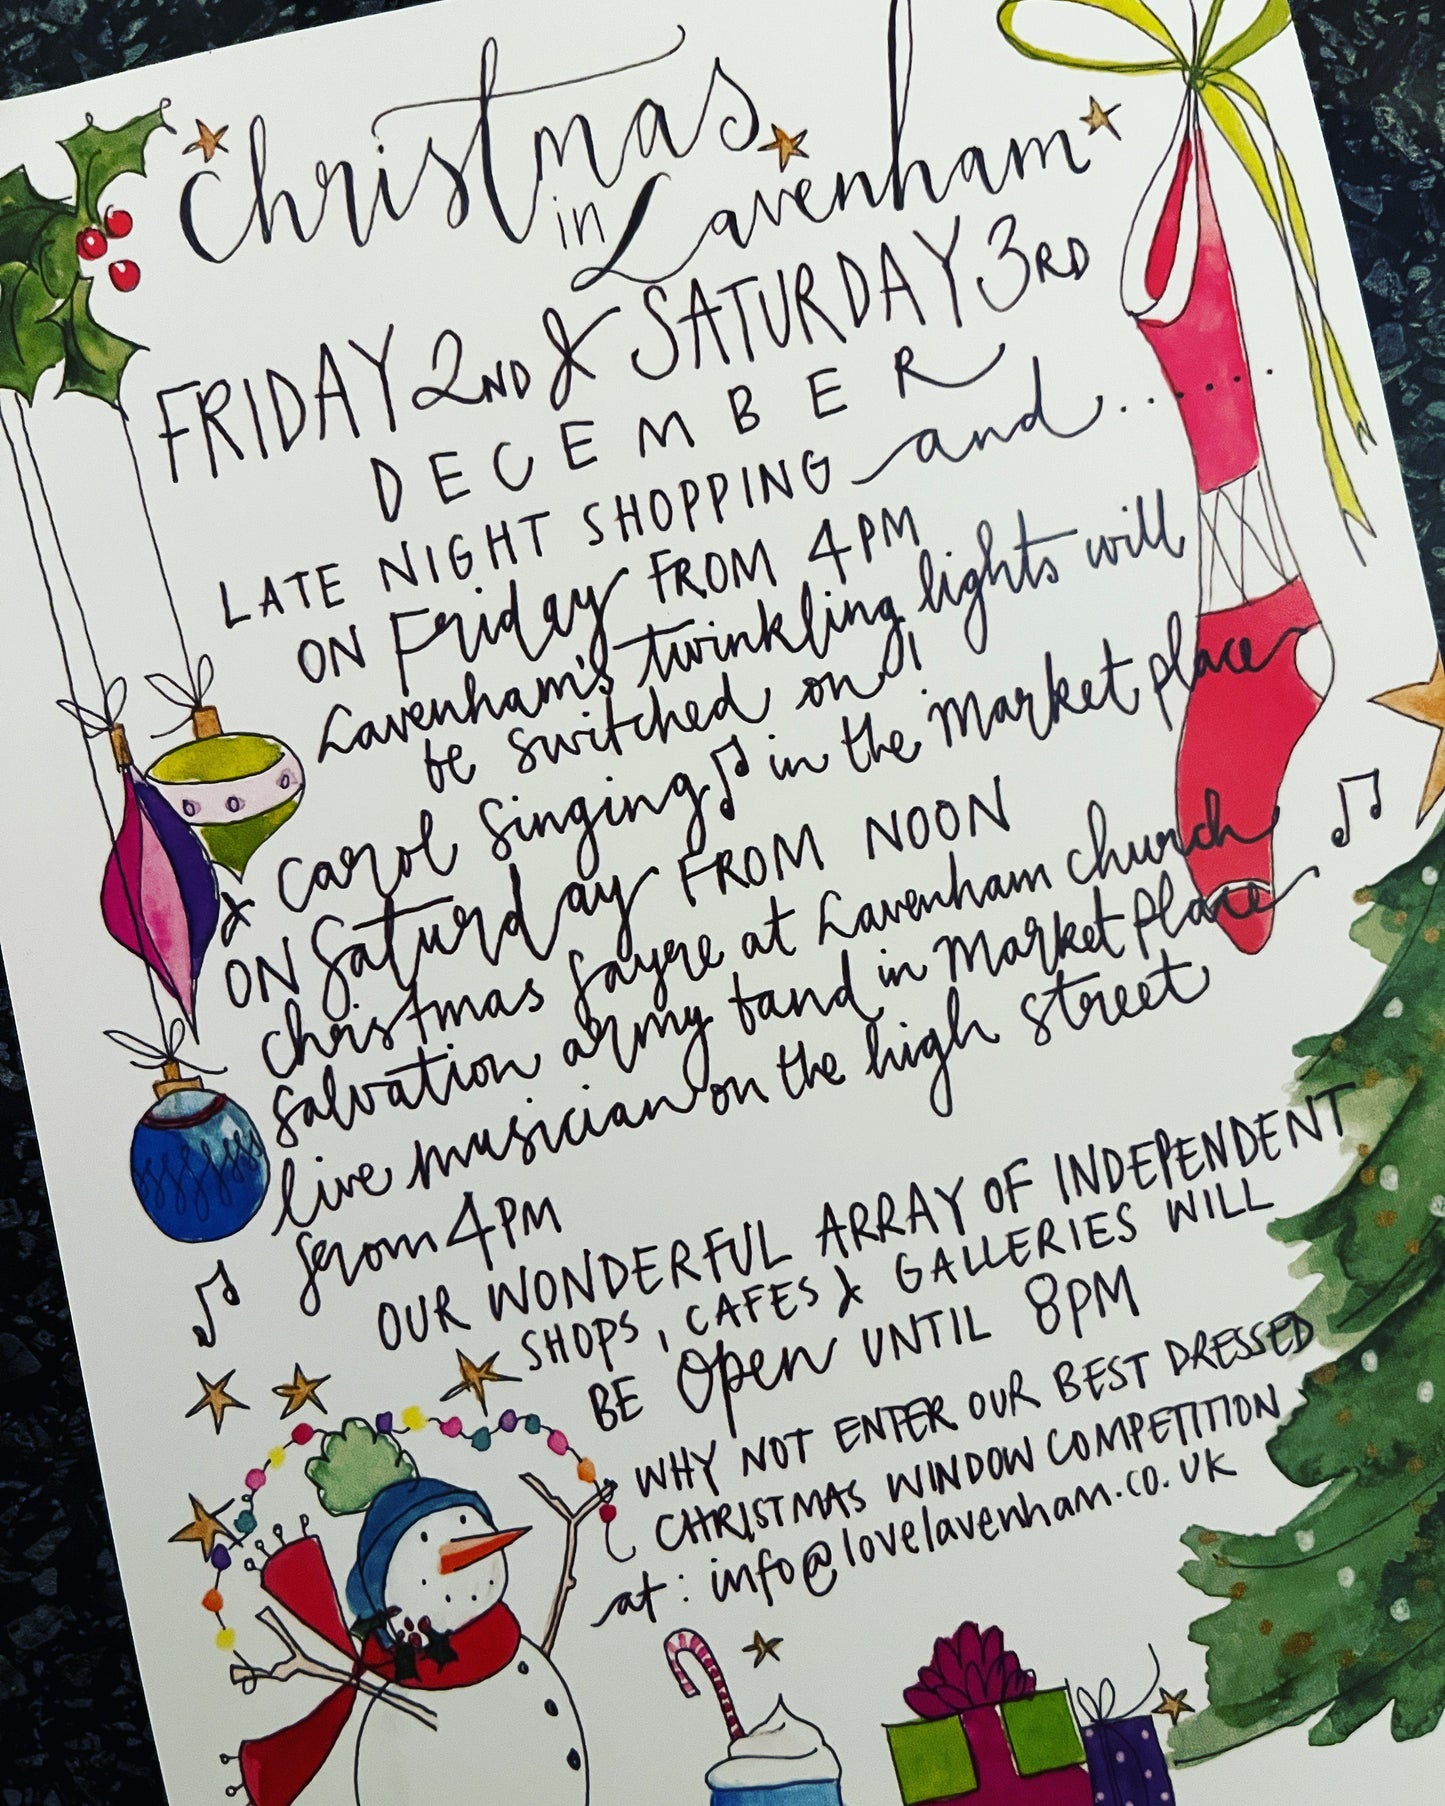 Christmas
in Lavenham
FRIDAY 2ND & SATURDAY 3RD
DECEMBER
LATE NIGHT SHOPPING and...
ON Friday FROM 4PM
Lavenham's twinkling lights will
be switched on!
& carol singing in the Market place
ON Saturday FROM NOON
Christmas fayre at Lavenham church
Salvation army band in Market place
live musician on the high street
from 4PM
OUR WONDERFUL ARRAY OF INDEPENDENT
SHOPS, CAFES & GALLERIES WILL
BE Open UNTIL 8PM
WHY NOT ENTER OUR BEST DRESSED
CHRISTMAS WINDOW COMPETITION
at: info@lovelavenham.co.uk